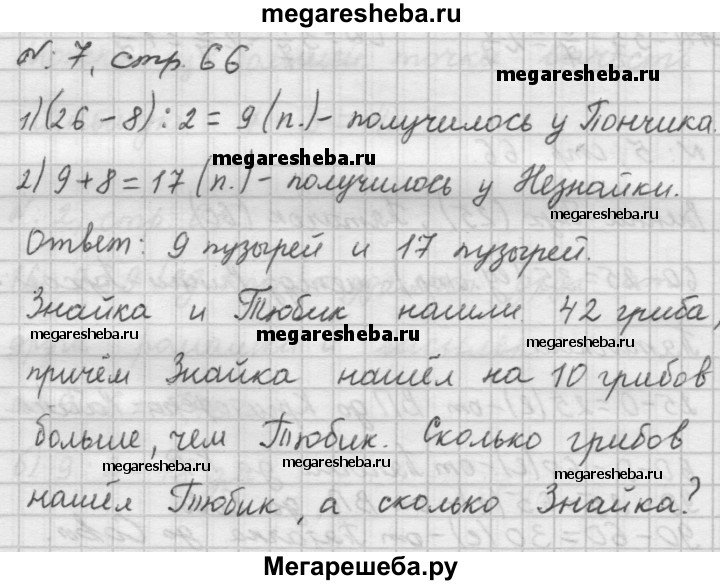 megaresheba.ru
№ 7, стр. 66
megaresheba.ru
1) (26 - 8) : 2 = 9 (п.) - получилось у Пончика.
megaresheba.ru
2) 9 + 8 = 17 (п.) - получилось у Незнайки.
megaresheba.ru
Ответ: 9 пузырей и 17 пузырей.
Знайка и Тюбик нашли 42 гриба,
megaresheba.ru megaresheba.ru megaresheba.ru
причём Знайка нашёл на 10 грибов
больше, чем Тюбик. Сколько грибов
megaresheba.ru megaresheba.ru megaresheba.ru
нашёл Тюбик, а сколько Знайка?
Мегарешеба.ру